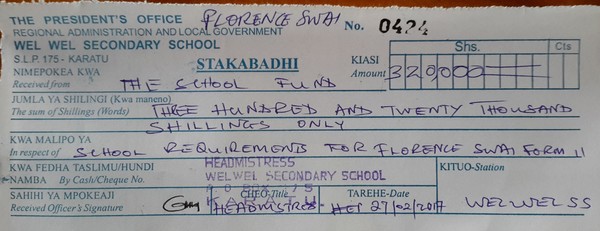 THE PRESIDENT'S OFFICE FLORENCE SWAI No. 0424
REGIONAL ADMINISTRATION AND LOCAL GOVERNMENT
WEL WEL SECONDARY SCHOOL Shs. Cts
S.L.P. 175 - KARATU STAKABADHI KIASI
NIMEPOKEA KWA Amount 320,000
Received from THE SCHOOL FUND
JUMLA YA SHILINGI (Kwa maneno)
The sum of Shillings (Words) THREE HUNDRED AND TWENTY THOUSAND
SHILLINGS ONLY
KWA MALIPO YA
In respect of SCHOOL REQUIREMENTS FOR FLORENCE SWAI FORM II
KWA FEDHA TASLIMU/HUNDI HEADMISTRESS KITUO-Station
NAMBA By Cash/Cheque No. WELWEL SECONDARY SCHOOL
SAHIHI YA MPOKEAJI CHEO-Title TAREHE-Date
Received Officer's Signature HEADMISTRES 27/02/2017 WELWEL SS